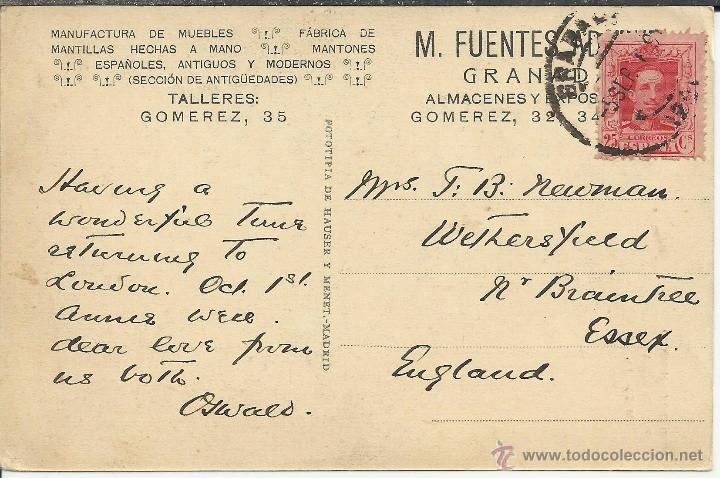 MANUFACTURA DE MUEBLES FÁBRICA DE
MANTILLAS HECHAS A MANO MANTONES
ESPAÑOLES, ANTIGUOS Y MODERNOS
(SECCIÓN DE ANTIGÜEDADES)
TALLERES:
GOMEREZ, 35
M. FUENTES
GRANAD
ALMACENES Y EXPOS
GOMEREZ, 32, 34
CORREOS
25 ESPAÑA Cs
FOTOTIPIA DE HAUSER Y MENET.-MADRID
Having a
wonderful time
returning to
London. Oct. 1st.
Annie well.
dear love from
us both.
Oswald.
Mrs. T. B. Newman.
Wethersfield
Nr Braintree
Essex.
England.
www.todocoleccion.net